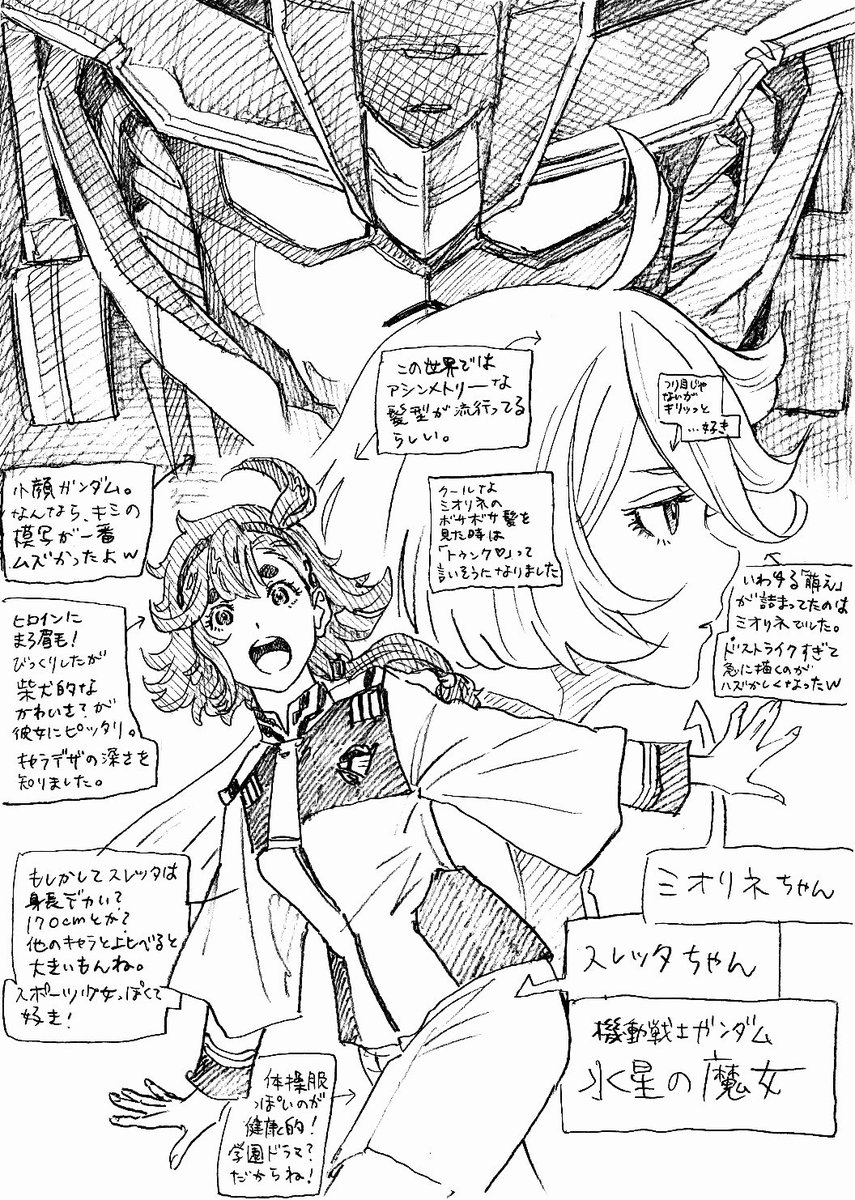 この世界では
アシンメトリーな
髪型が流行ってる
らしい。
つり目じゃ
ないが
キリッと
…好き
クールな
ミオリネの
ボサボサ髪を
見た時は
「トゥンク♡」って
言いそうになりました
小顔ガンダム。
なんなら、キミの
模写が一番
ムズかったよw
いわゆる「萌え」
が詰まってたのは
ミオリネでした。
ドストライクすぎて
急に描くのが
ハズかしくなったw
ヒロインに
まろ眉毛!
びっくりしたが
柴犬的な
かわいさ?が
彼女にピッタリ。
キャラデザの深さを
知りました。
もしかしてスレッタは
身長デカい?
170cmとか?
他のキャラと比べると
大きいもんね。
スポーツ少女っぽくて
好き!
ミオリネちゃん
スレッタちゃん
機動戦士ガンダム
水星の魔女
体操服
っぽいのが
健康的!
学園ドラマ?
だからね!